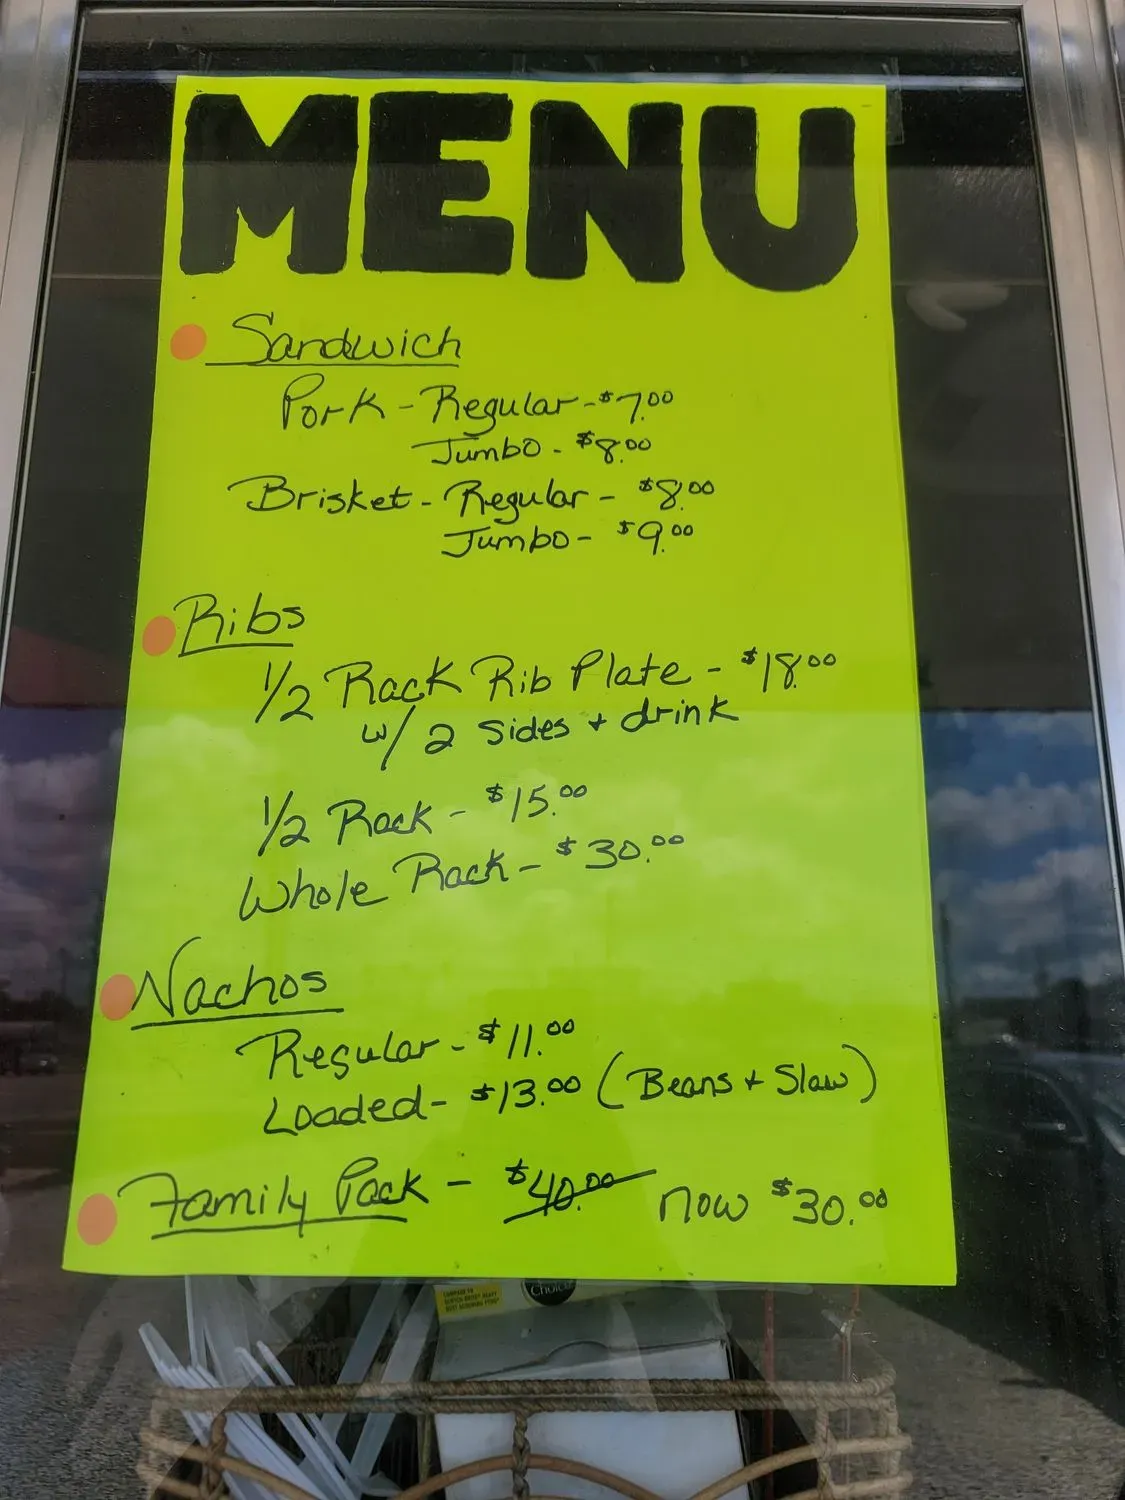 MENU
Sandwich
Pork - Regular - $7.00
Jumbo - $8.00
Brisket - Regular - $8.00
Jumbo - $9.00
Ribs
1/2 Rack Rib Plate - $18.00
w/ 2 Sides + drink
1/2 Rack - $15.00
Whole Rack - $30.00
Nachos
Regular - $11.00
Loaded - $13.00 (Beans + Slaw)
Family Pack - $40.00 now $30.00
Choice